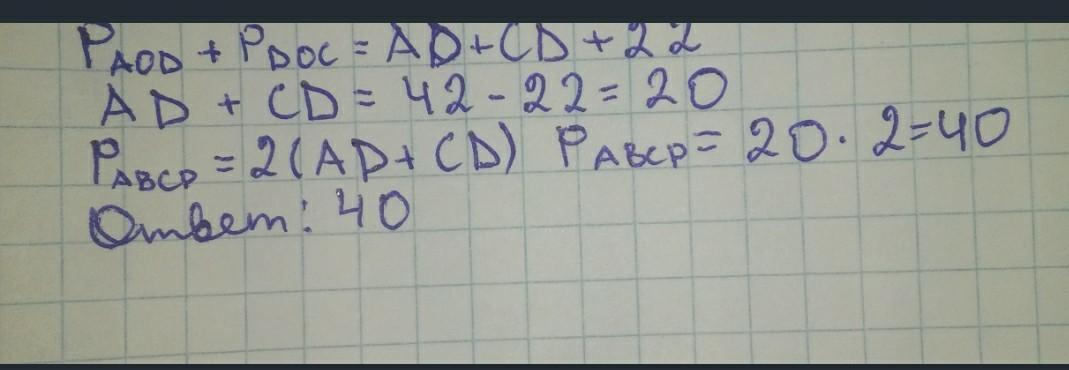 P AOD + P DOC = AD + CD + 22
AD + CD = 42 - 22 = 20
P ABCD = 2(AD + CD) P ABCD = 20 · 2 = 40
Ответ: 40